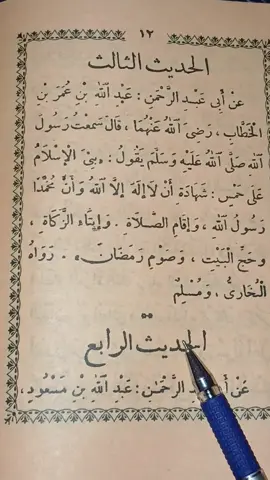 ١٢
الحديث الثالث
عَنْ أَبِي عَبْدِ الرَّحْمٰنِ : عَبْدِ اللهِ بْنِ عُمَرَ بْنِ
الْخَطَّابِ ، رَضِيَ اللهُ عَنْهُمَا ، قَالَ سَمِعْتُ رَسُولَ
اللهِ صَلَّى اللهُ عَلَيْهِ وَسَلَّمَ يَقُولُ : «بُنِيَ الْإِسْلَامُ
عَلَى خَمْسٍ : شَهَادَةِ أَنْ لَا إِلٰهَ إِلَّا اللهُ وَأَنَّ مُحَمَّدًا
رَسُولُ اللهِ ، وَإِقَامِ الصَّلَاةِ . وَإِيتَاءِ الزَّكَاةِ ،
وَحَجِّ الْبَيْتِ ، وَصَوْمِ رَمَضَانَ» . رَوَاهُ
الْبُخَارِيُّ ، وَمُسْلِمٌ
الحديث الرابع
عَنْ الرَّحْمٰنِ : عَبْدِ اللهِ بْنِ مَسْعُودٍ ،